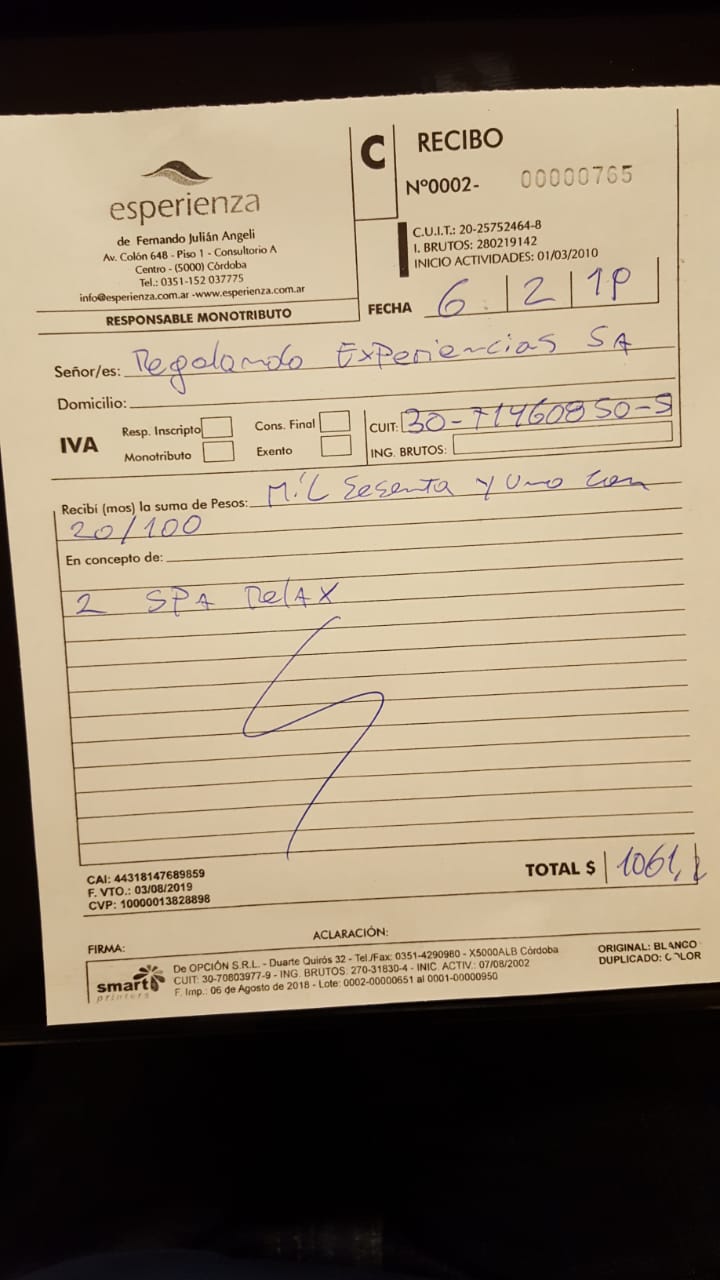 esperienza
de Fernando Julián Angeli
Av. Colón 648 - Piso 1 - Consultorio A
Centro - (5000) Córdoba
Tel.: 0351-152 037775
info@esperienza.com.ar -www.esperienza.com.ar
RESPONSABLE MONOTRIBUTO
C
RECIBO
Nº0002- 00000765
C.U.I.T.: 20-25752464-8
I. BRUTOS: 280219142
INICIO ACTIVIDADES: 01/03/2010
FECHA 6 2 19
Señor/es: Regalando Experiencias SA
Domicilio:
IVA
Resp. Inscripto
Cons. Final
Monotributo
Exento
CUIT: 30-71460850-5
ING. BRUTOS:
Recibí (mos) la suma de Pesos: Mil Sesenta y Uno con
20/100
En concepto de:
2 SPA Relax
CAI: 44318147689859
F. VTO.: 03/08/2019
CVP: 10000013828898
TOTAL $ 1061,2
FIRMA:
ACLARACIÓN:
smart printers
De OPCIÓN S.R.L. - Duarte Quirós 32 - Tel./Fax: 0351-4290980 - X5000ALB Córdoba
CUIT: 30-70803977-9 - ING. BRUTOS: 270-31830-4 - INIC. ACTIV.: 07/08/2002
F. Imp.: 06 de Agosto de 2018 - Lote: 0002-00000651 al 0001-00000950
ORIGINAL: BLANCO
DUPLICADO: COLOR